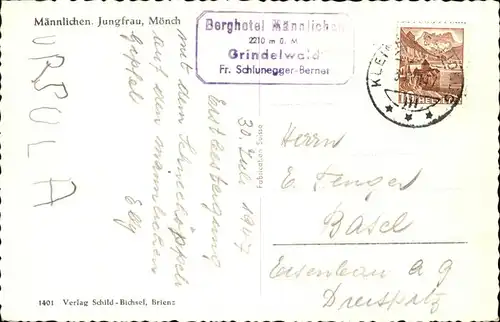 Männlichen. Jungfrau, Mönch
Berghotel Männlichen
2210 m ü. M
Grindelwald
Fr. Schlunegger-Berner
HELVETIA
URSULA
30. Juli 1947
Erstbesteigung
mit dem
auf den Männlichen
Gipfel
Elly
Fabrication Suisse
Herrn
E. Fenger
Basel
Eisenbau A G
Dreispitz
1401 Verlag Schild-Bichsel, Brienz